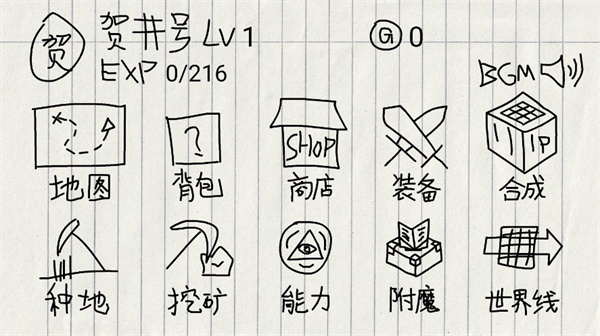 贺
贺井号 LV 1
G 0
EXP 0/216
BGM
?
SHOP
地图 背包 商店 装备 合成
种地 挖矿 能力 附魔 世界线